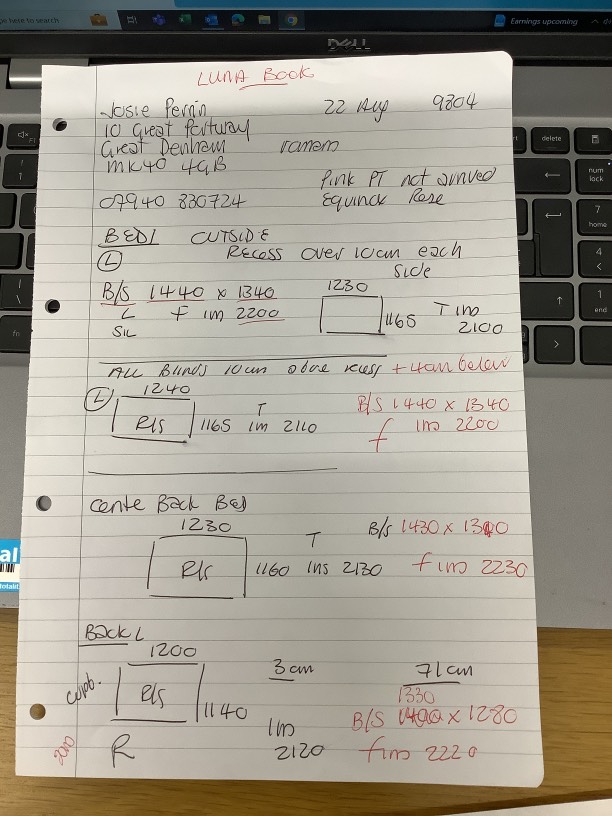 LUNA BOOK
Josie Perrin 22 Aug 9304
10 Great Portway
Great Denham
MK40 4GB
Pink PT not arrived
07940 830724 Equinox Rose
BED1 OUTSIDE
(L) Recess over 10cm each
side
B/S 1440 x 1340 1230
L f im 2200 1165 T ins
2100
ALL Blinds 10cm above recess + 4cm below
(L) 1240
R/S 1165 T im 2110 B/S 1440 x 1340
f ins 2200
Cente Back Bed
1230
R/S 1160 T ins 2130 B/S 1430 x
f ins 2230
Back L
1200 3cm 71cm
cupb. R/S 1140 1330
B/S x 1280
R im 2120 f ins 2220
DELL
Earnings upcoming
delete
num
lock
7
home
4
1
end
fn